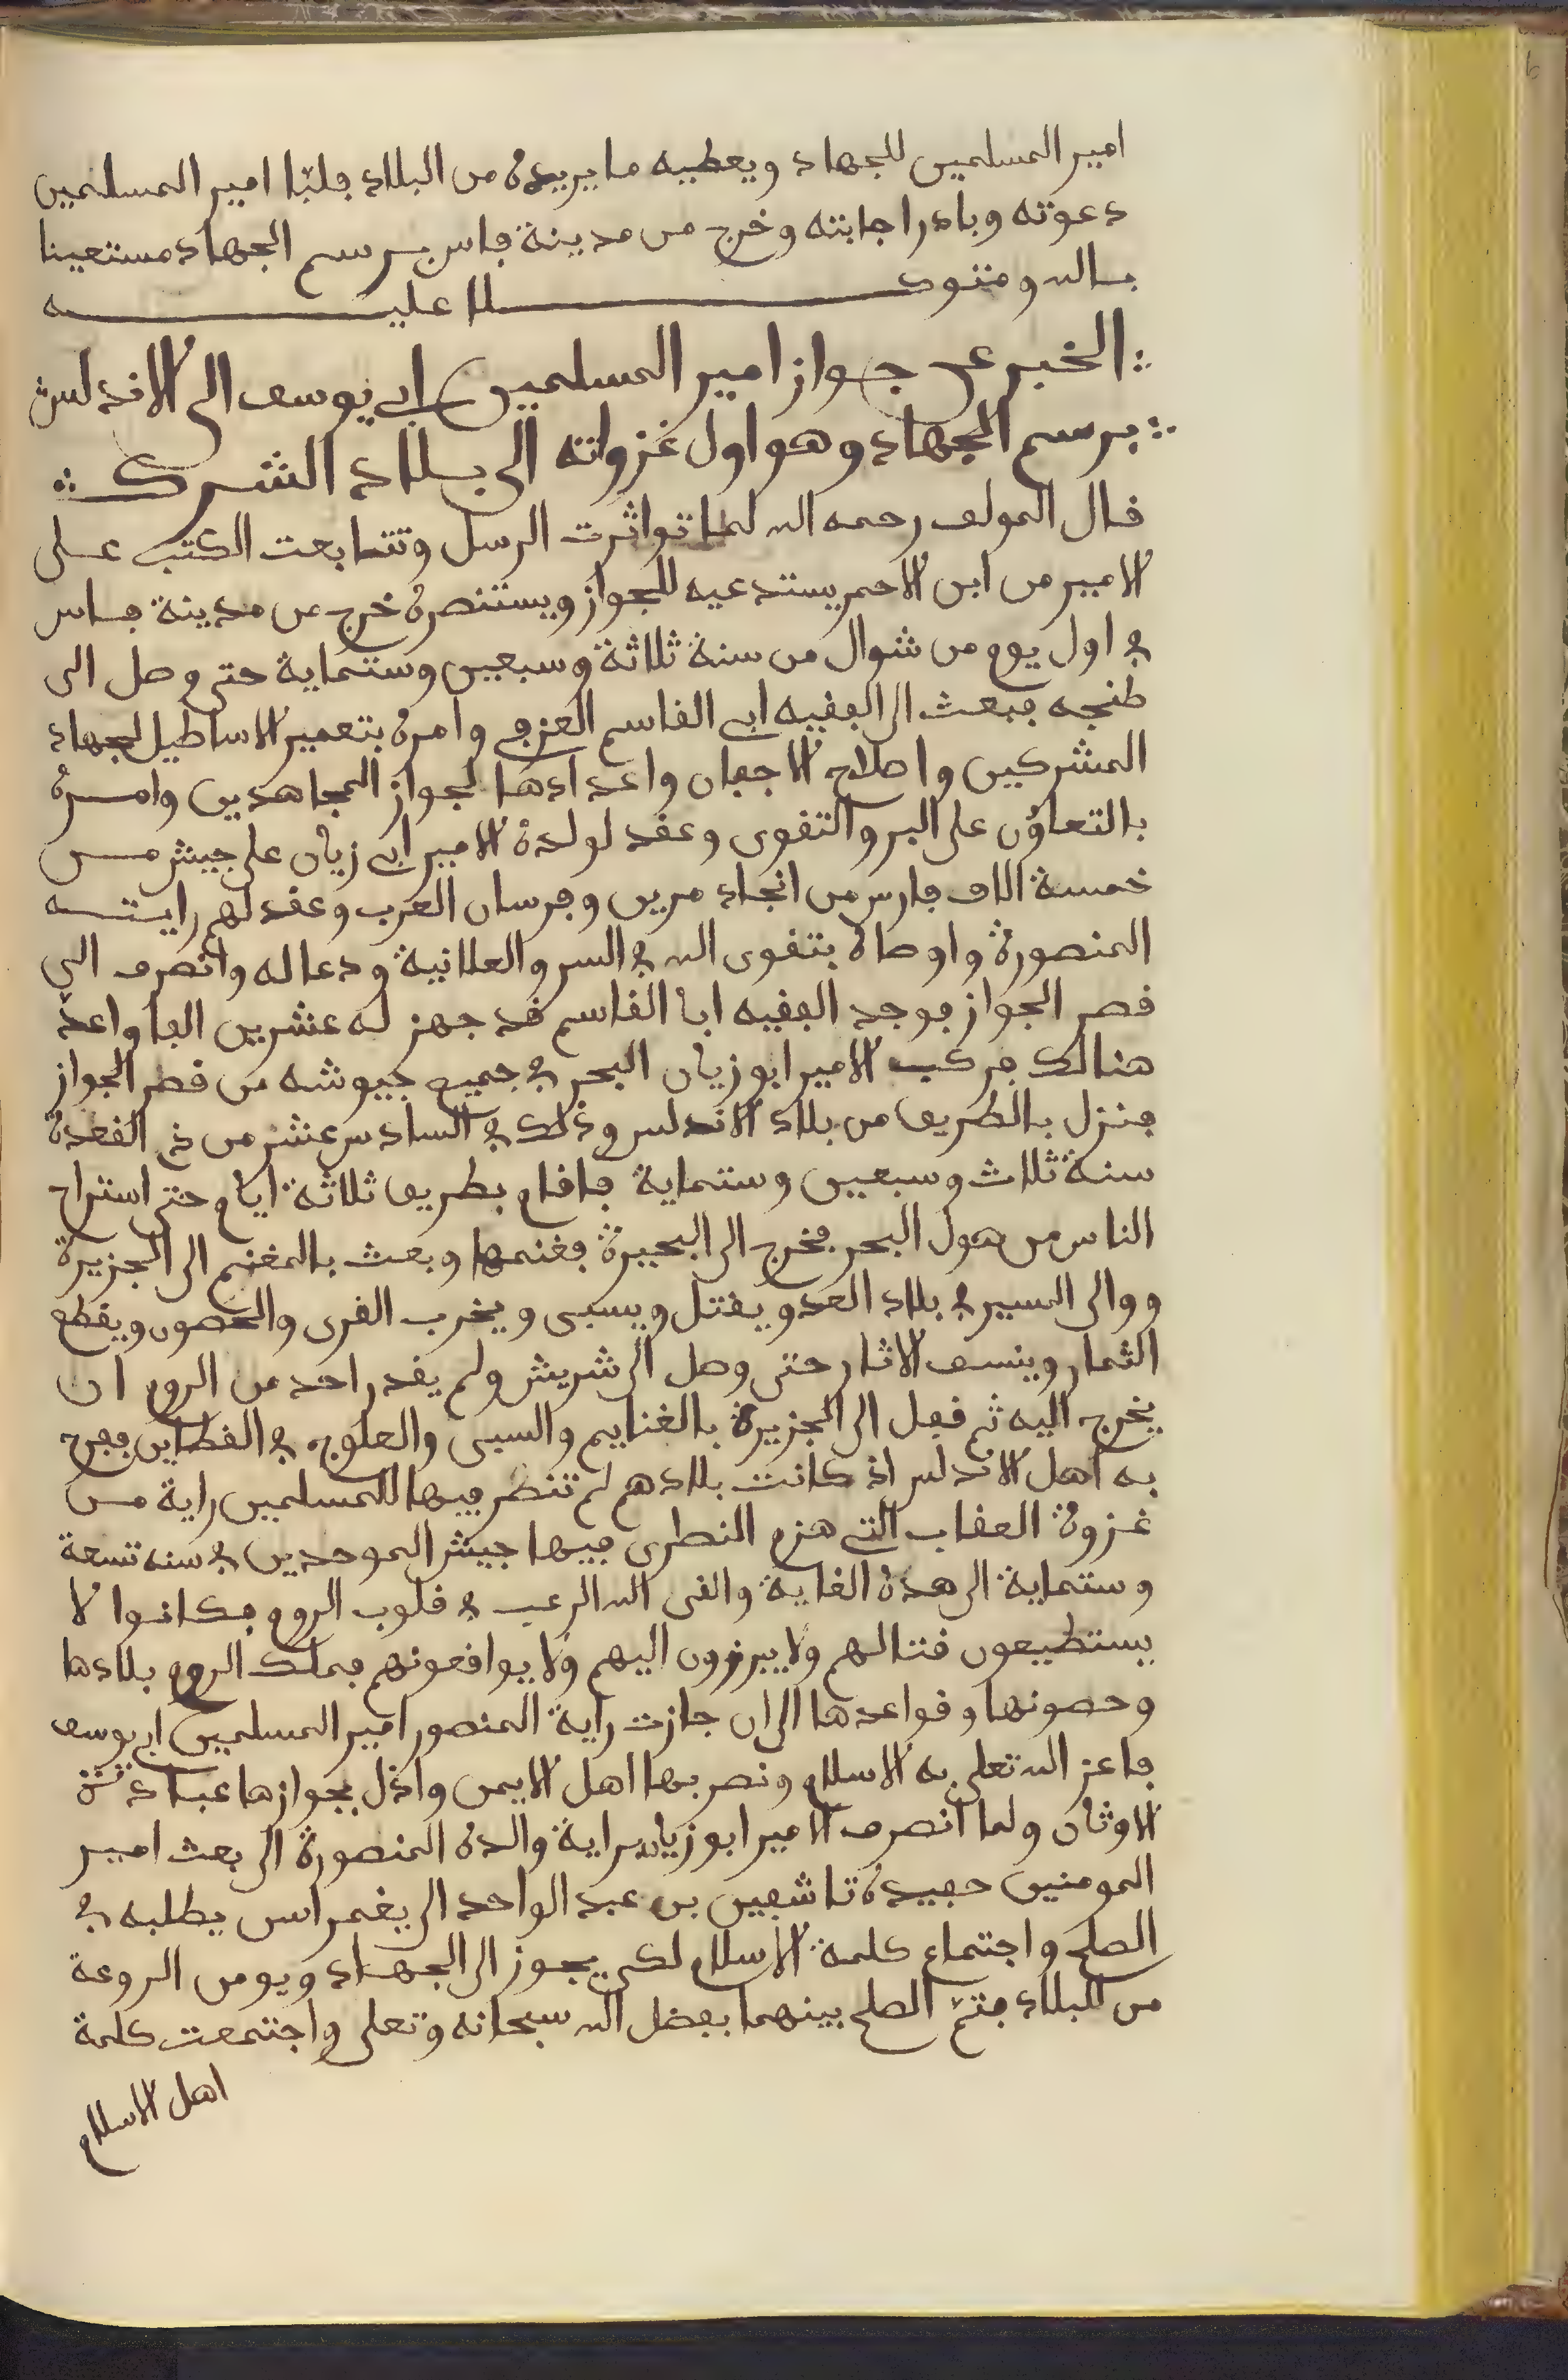 امير المسلمين للجهاد ويعطيه ما يريده من البلاد فلبّا امير المسلمين
دعوته وبادر اجابته وخرج من مدينة فاس برسم الجهاد مستعينا
بالله ومتوكلا عليه
الخبر عن جواز امير المسلمين ابي يوسف الى الاندلس
برسم الجهاد وهو اول غزواته الى بلاد الشرك
قال المولف رحمه الله لما تواثرت الرسل وتتابعت الكتب على
الامير من ابن الاحمر يستدعيه للجواز ويستنصره خرج من مدينة فاس
في اول يوم من شوال من سنة ثلاثة وسبعين وستماية حتى وصل الى
طنجه فبعث الى الفقيه ابي القاسم العزفي وامره بتعمير الاساطيل لجهاد
المشركين واصلاح الاجفان واعدادها لجواز المجاهدين وامره
بالتعاون على البر والتقوى وعقد لولده الامير ابي زيان على جيش من
خمسة الاف فارس من انجاد مرين وفرسان العرب وعقد لهم رايته
المنصورة واوصاه بتقوى الله في السر والعلانية ودعا له وانصرف الى
قصر الجواز فوجد الفقيه ابا القاسم قد جهز له عشرين الفا واعدّ
هنالك فركب الامير ابو زيان البحر في جميع جيوشه من قصر الجواز
فنزل بالطريف من بلاد الاندلس وذلك في السادس عشر من ذي القعدة
سنة ثلاث وسبعين وستماية فاقام بطريف ثلاثة ايام حتى استراح
الناس من هول البحر فخرج الى البحيرة فغنمها وبعث بالمغنم الى الجزيرة
ووالى السير في بلاد العدو يقتل ويسبى ويخرب القرى والحصون ويقطع
الثمار وينسف الاثار حتى وصل الى شريش ولم يقدر احد من الروم ان
يخرج اليه ثم قفل الى الجزيرة بالغنايم والسبى والعلوج في القطاين ففرح
به اهل الاندلس اذ كانت بلادهم لم تنصر فيها للمسلمين راية من
غزوة العقاب التي هزم النصرى فيها جيش الموحدين في سنه تسعة
وستماية الى هذه الغاية والقى الله الرعب في قلوب الروم فكانوا لا
يستطيعون قتالهم ولا يبرزون اليهم ولا يوافعونهم فملك الروم بلادها
وحصونها وقواعدها الى ان جازت راية المنصور امير المسلمين ابي يوسف
فاعز الله تعلى به الاسلام ونصر بها اهل الايمن واذل بجوازها عبادة
الاوثان ولما انصرف الامير ابو زيان براية والده المنصورة الى بعث امير
المومنين حفيده تاشفين بن عبد الواحد الى يغمراسن يطلبه في
الصلح واجتماع كلمة الاسلام لكي يجوز الى الجهاد ويومن الروعة
من البلاد فتمّ الصلح بينهما بفضل الله سبحانه وتعلى واجتمعت كلمة
اهل الاسلام